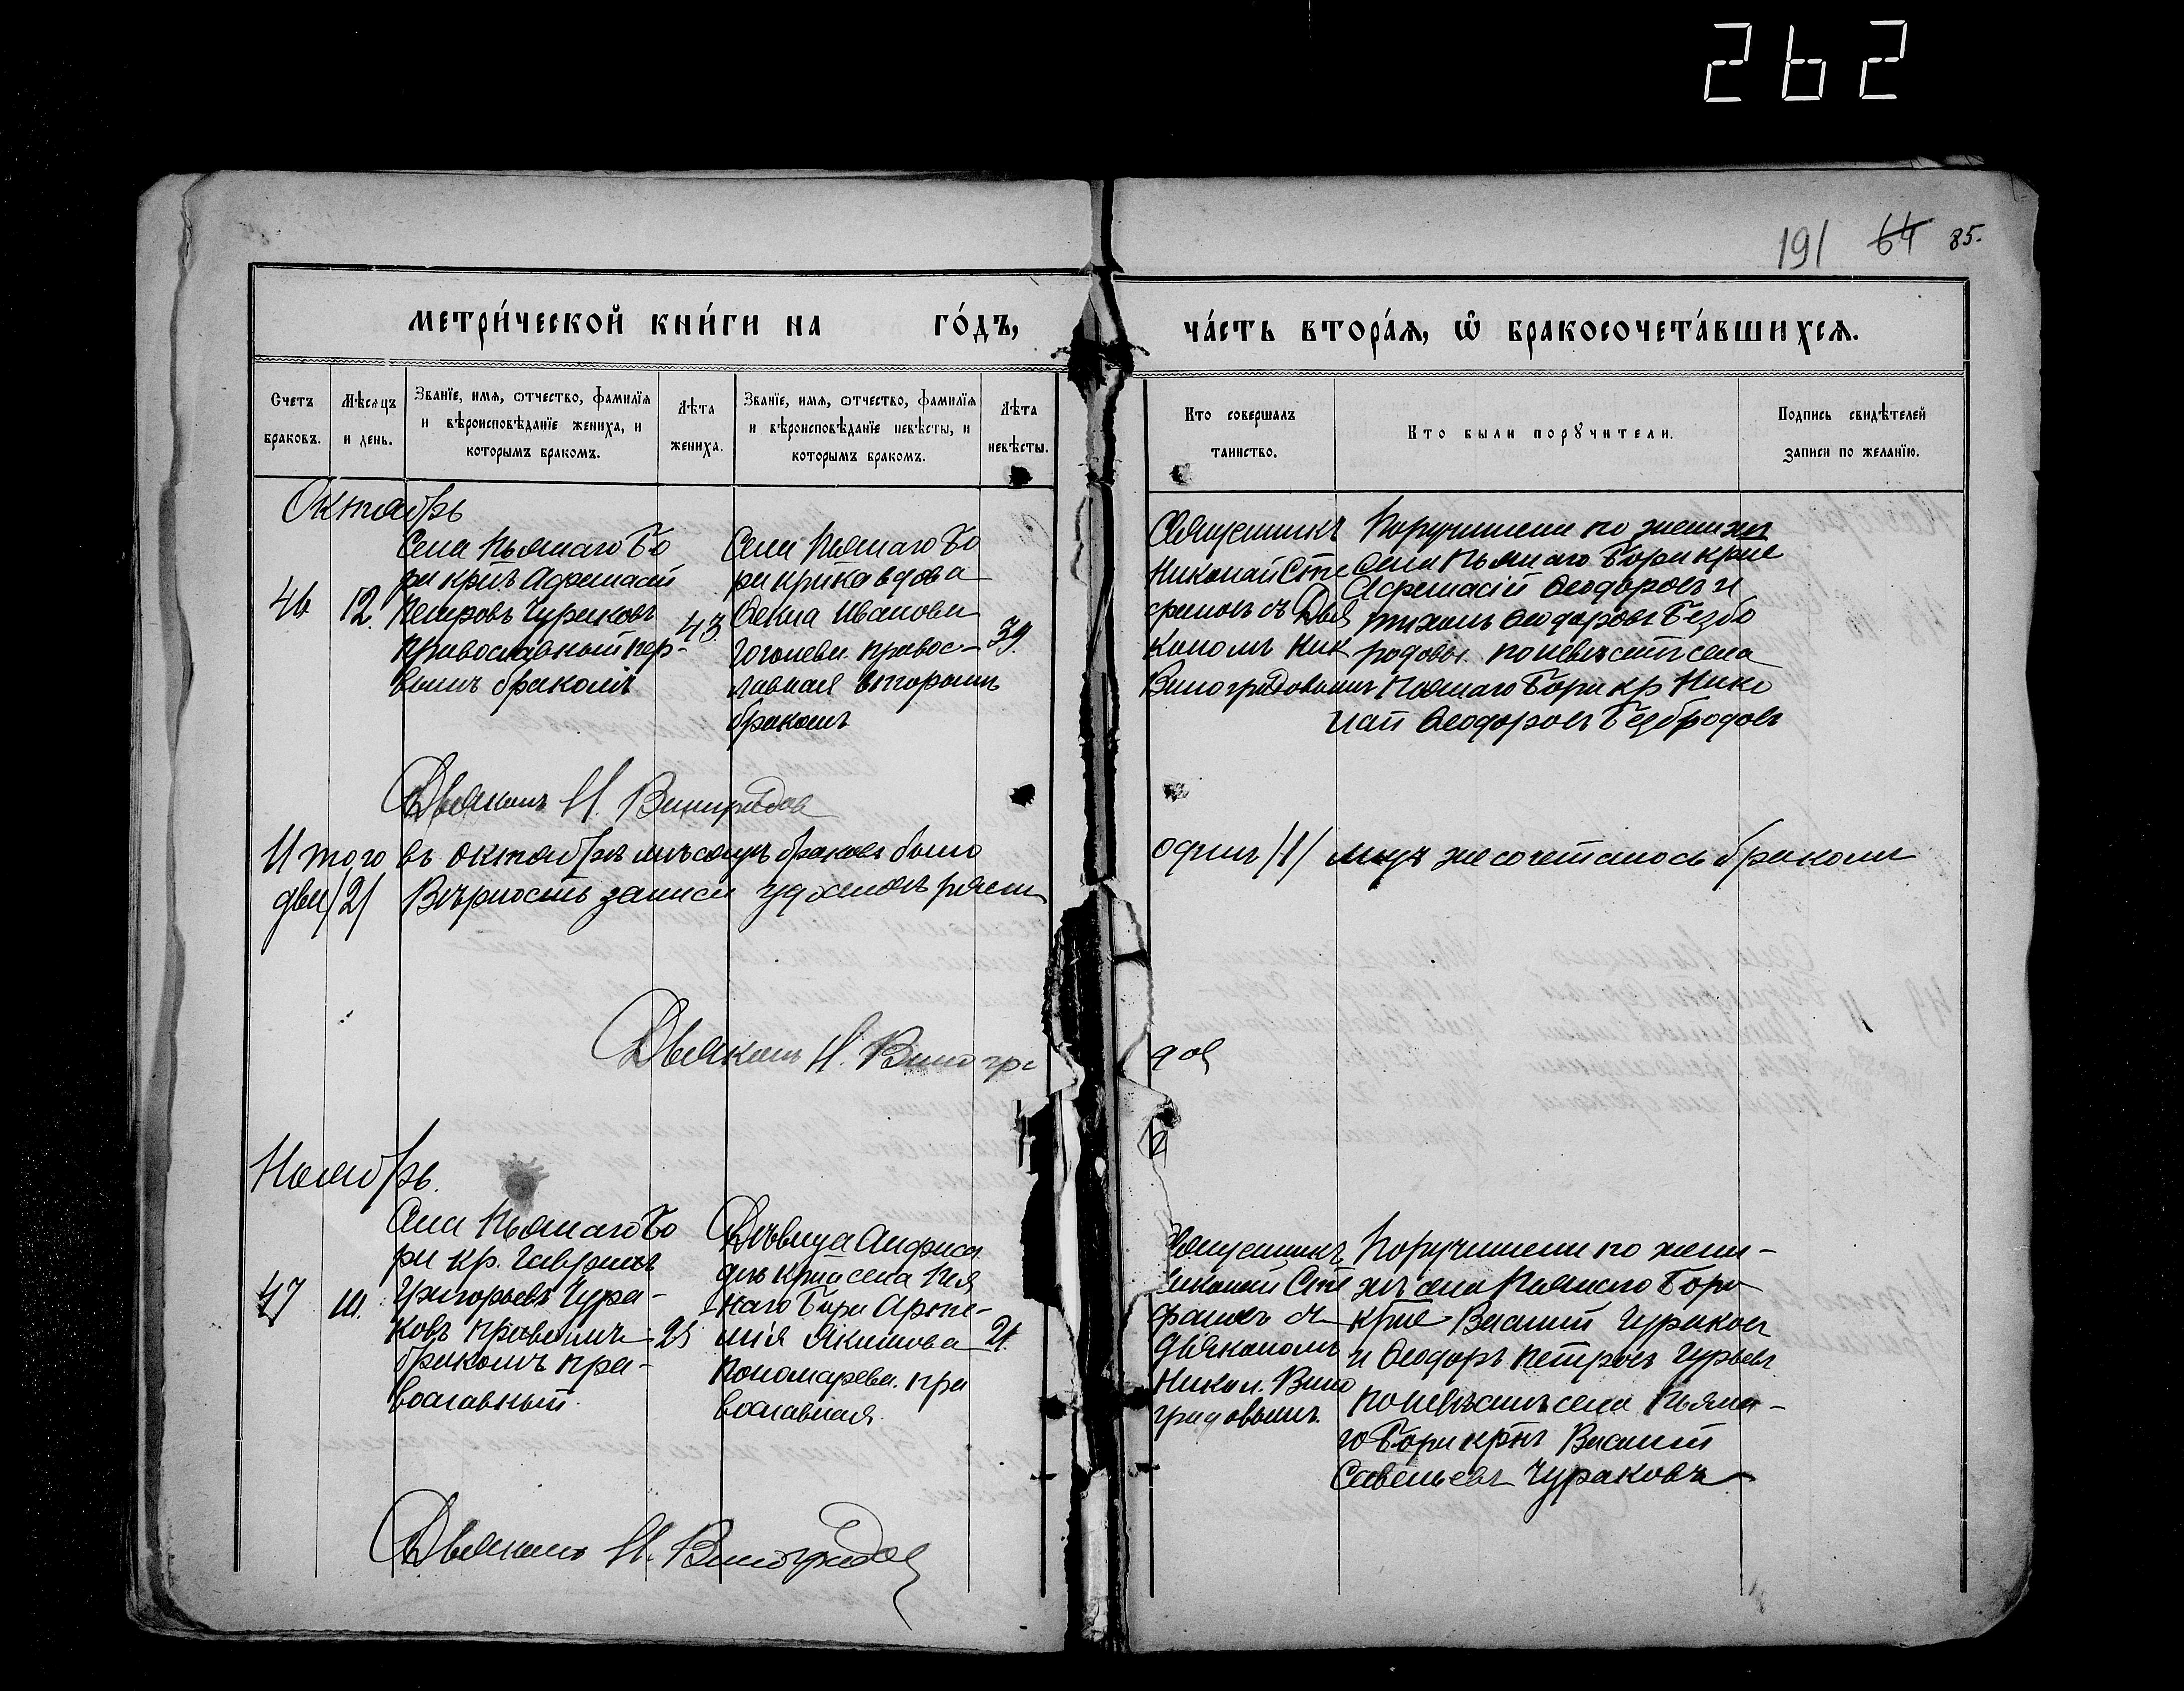 262
191 64 85.
метри́ческой кни́ги на го́дъ,
ча́сть втора́я, ѡ҆ бракосочета́вшихсѧ.
Счетъ браковъ.
Мѣсяцъ и день.
Званїе, имѧ, ѿчество, фамилїѧ и вѣроисповѣданїе жениха, и которымъ бракомъ.
Лѣта жениха.
Званїе, имѧ, ѿчество, фамилїѧ и вѣроисповѣданїе невѣсты, и которымъ бракомъ.
Лѣта невѣсты.
Кто совершалъ таинство.
Кто были порꙋчители.
Подпись свидѣтелей записи по желанїю.
Октябрь
46
12.
Села Пьянаго Бо
ра кр-нъ Афанасій
Петровъ Чураковъ
православный пер-
вымъ бракомъ
43.
Села Пьянаго Бо
ра кр-нка вдова
Ѳекла Иванова
Гоголева правос-
лавная вторымъ
бракомъ
39.
Священникъ
Николай Сте
фановъ съ Дья
кономъ Ник
Виноградовымъ
Поручители по женихѣ
села Пьянаго Бора кр-не
Афанасій Ѳеодоровъ и
Тихонъ Ѳеодоровъ Безбо
родовы. по невѣстѣ села
Пьянаго Бора кр Нико
лай Ѳеодоровъ Безбродовъ
Дьяконъ Н. Виноградов
Итого въ октябрѣ мѣсяцѣ браковъ было
одинъ /1/
же сочеталось бракомъ
два /2/ Вѣрность записи
Дьяконъ Н. Виногра
дов
Ноябрь.
47
Села Пьянаго Бо
ра кр. Гавріилъ
Григорьевъ Чура-
ковъ первымъ
бракомъ пра-
вославный.
25
Дѣвица
кр-на села Пья
наго Бора Арте-
мія Якимова
Пономарева. пра
вославная.
21.
Священникъ
Николай Сте
фановъ съ
дьякономъ
Никол. Вино
градовымъ
Поручители по жени-
хѣ села Пьянаго Бора
кр-не Василій Чураков
и Ѳеодоръ Петровъ Чурьевъ
по невѣстѣ села Пьяна-
го Бора кр-нъ Василій
Савельевъ Чураковъ
Дьяконъ Н. Виноградов